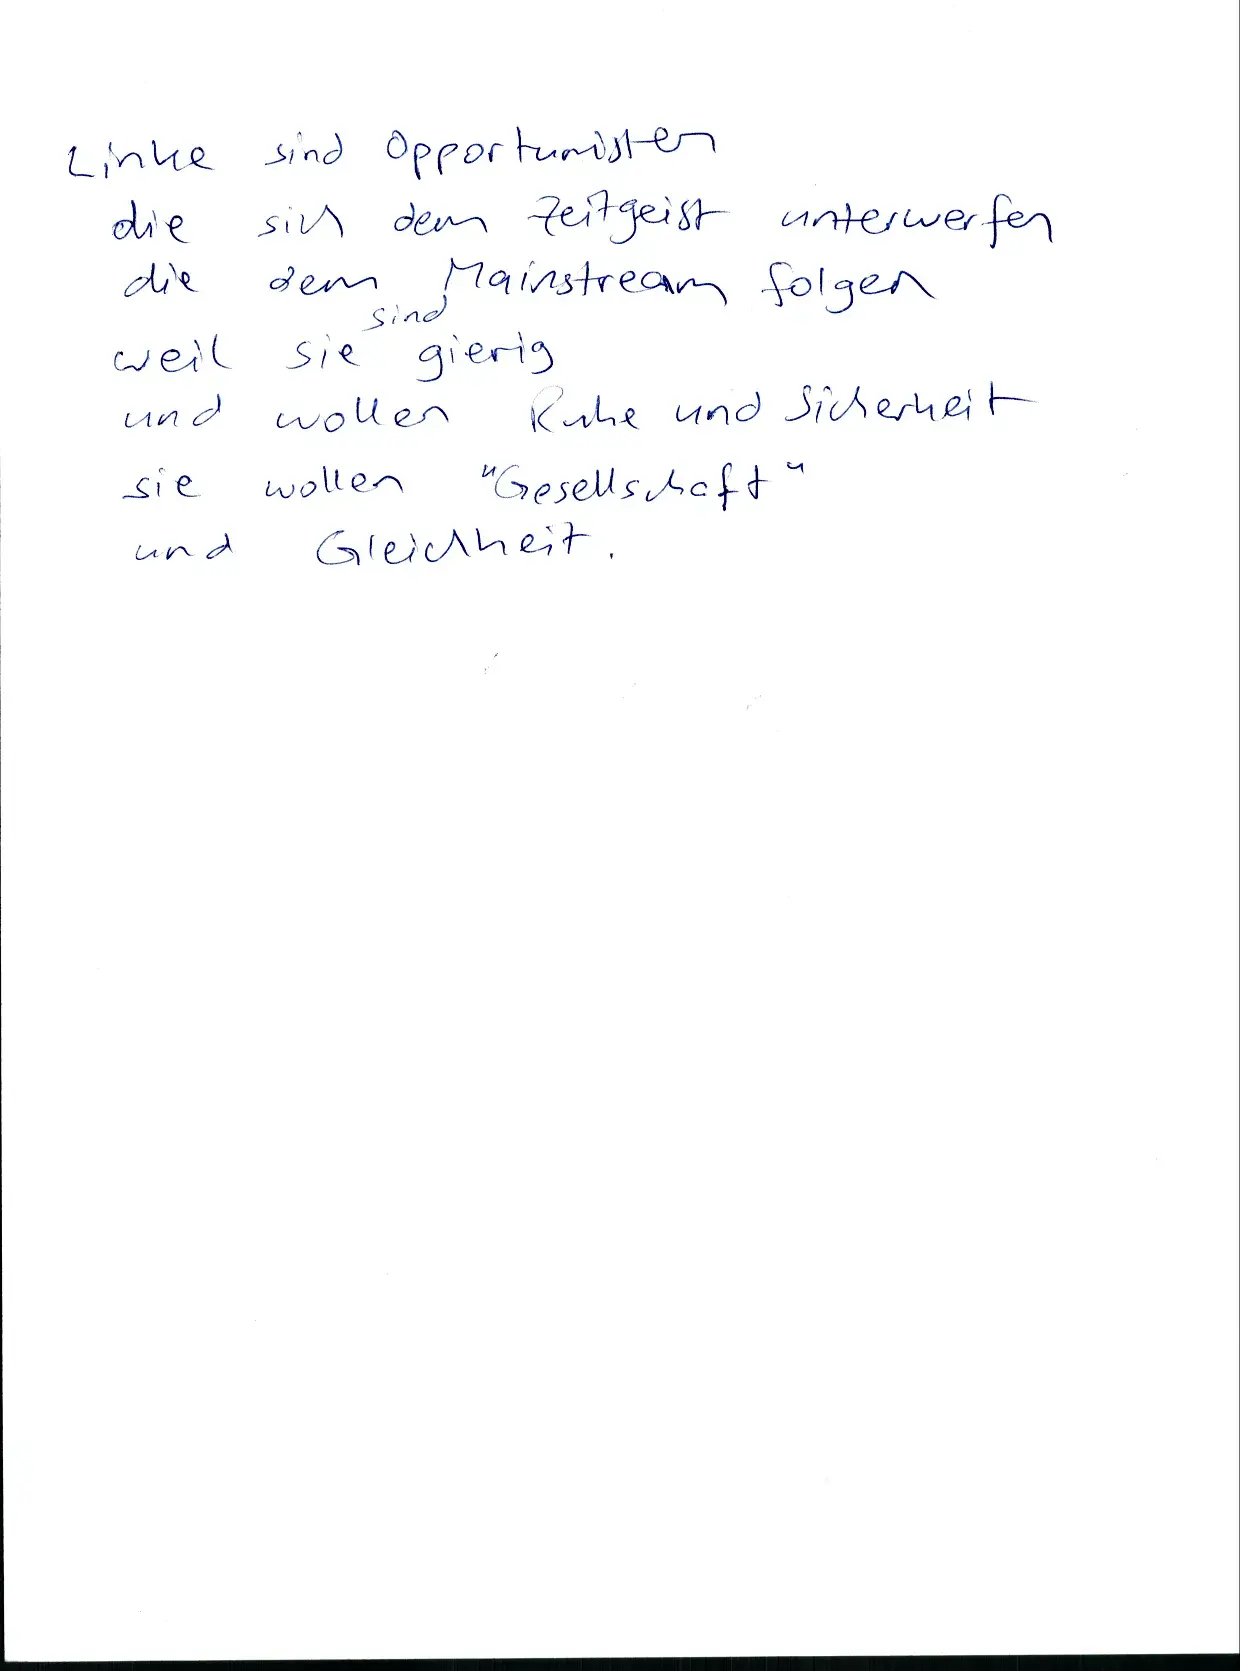 Linke sind Opportunisten
die sich dem Zeitgeist unterwerfen
die dem Mainstream folgen
weil sie sind gierig
und wollen Ruhe und Sicherheit
sie wollen "Gesellschaft"
und Gleichheit.